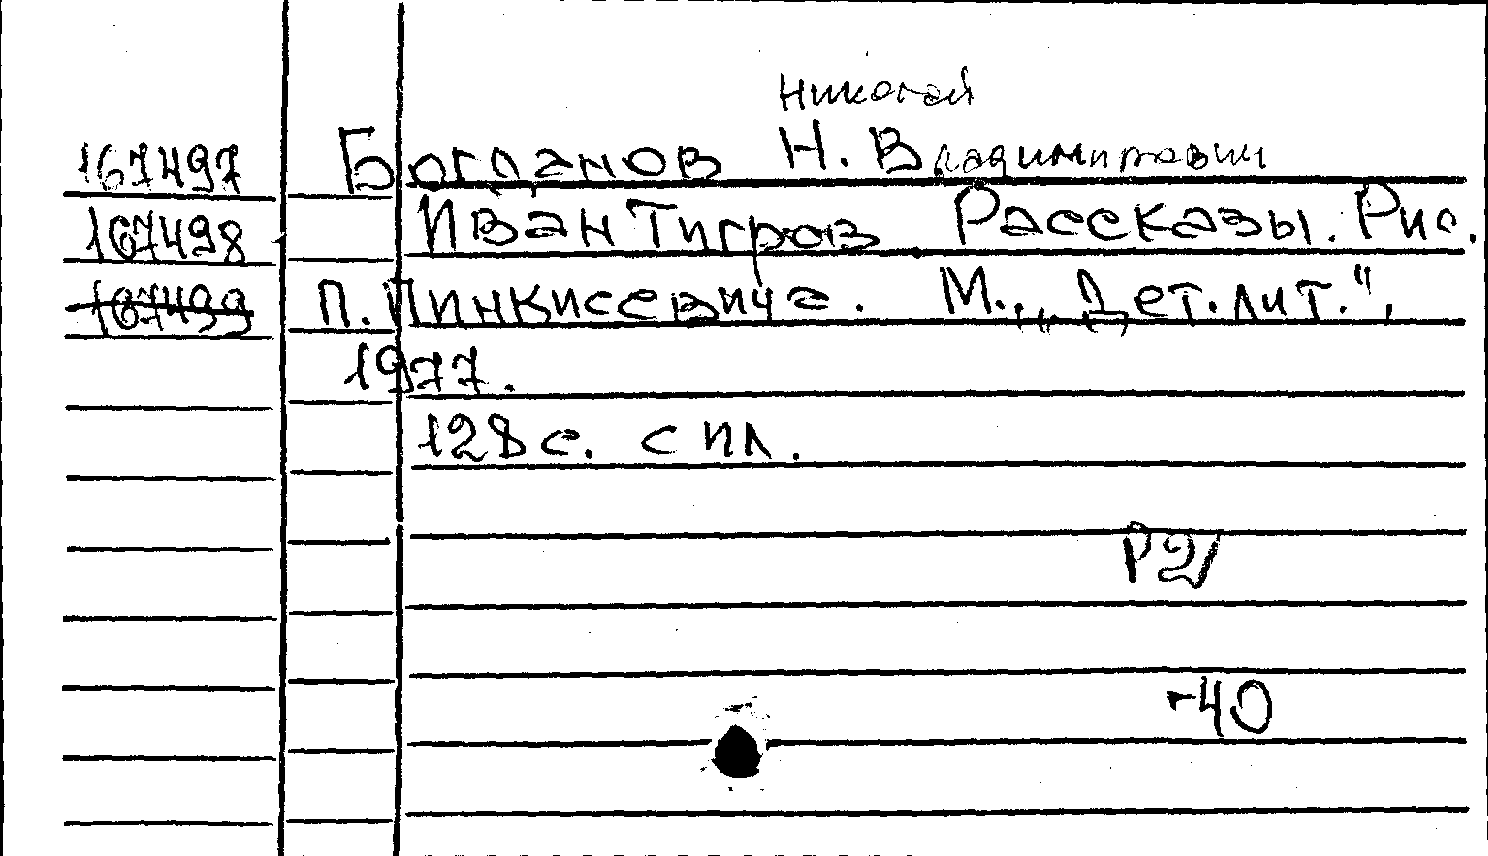 Николай
167497 Богданов Н. Владимирович
167498 Иван Тигров. Рассказы. Рис.
167499 П. Пинкисевича. М., „Дет. лит.",
1977.
128 с. с ил.
Р2
-40